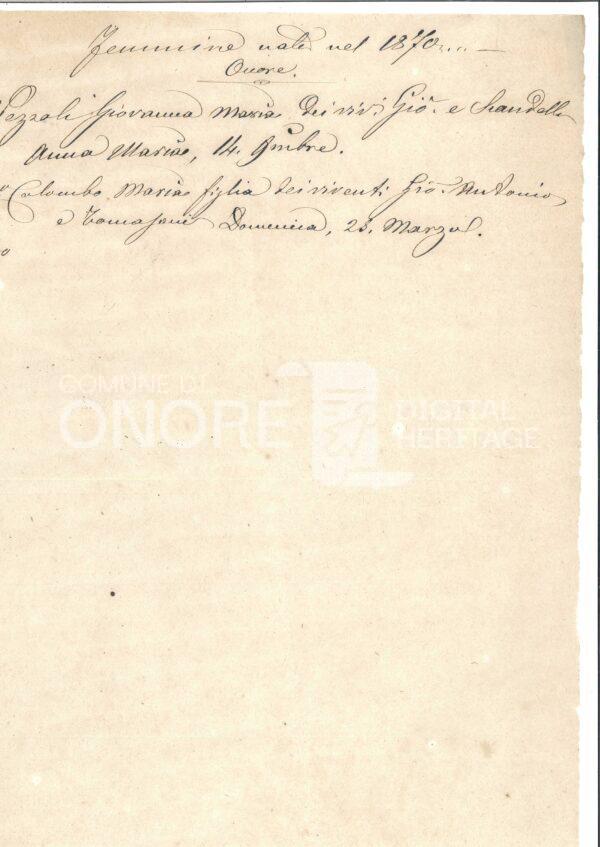 Femmine nate nel 1870 ... —
Onore.
Pezzoli Giovanna Maria dei vivi Gio. e Scandella
Anna Maria, 14. 9mbre.
Colombo Maria figlia dei viventi Gio. Antonio
e Tomasoni Domenica, 23. Marzo.
COMUNE DI
ONORE
DIGITAL
HERITAGE